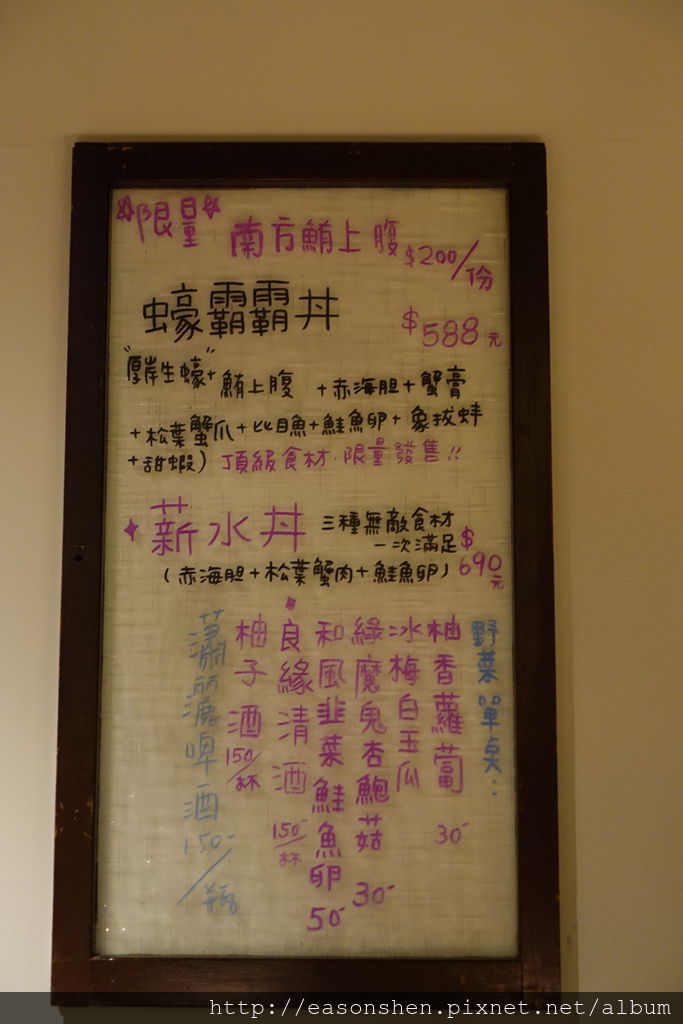 限量
南方鮪上腹 $200/份
蠔霸霸丼 $588元
"厚岸生蠔"+鮪上腹 +赤海胆+蟹膏
+松葉蟹爪+比目魚+鮭魚卵+象拔蚌
+甜蝦) 頂級食材·限量發售!!
薪水丼 三種無敵食材
一次滿足 $690元
(赤海胆+松葉蟹肉+鮭魚卵)
野菜單點:
柚香蘿蔔 30-
冰梅白玉瓜
綠魔鬼杏鮑菇 30-
和風韭菜鮭魚卵 50-
良緣清酒 150-/杯
柚子酒 150/杯
瀟灑啤酒 150-/瓶
http://easonshen.pixnet.net/album